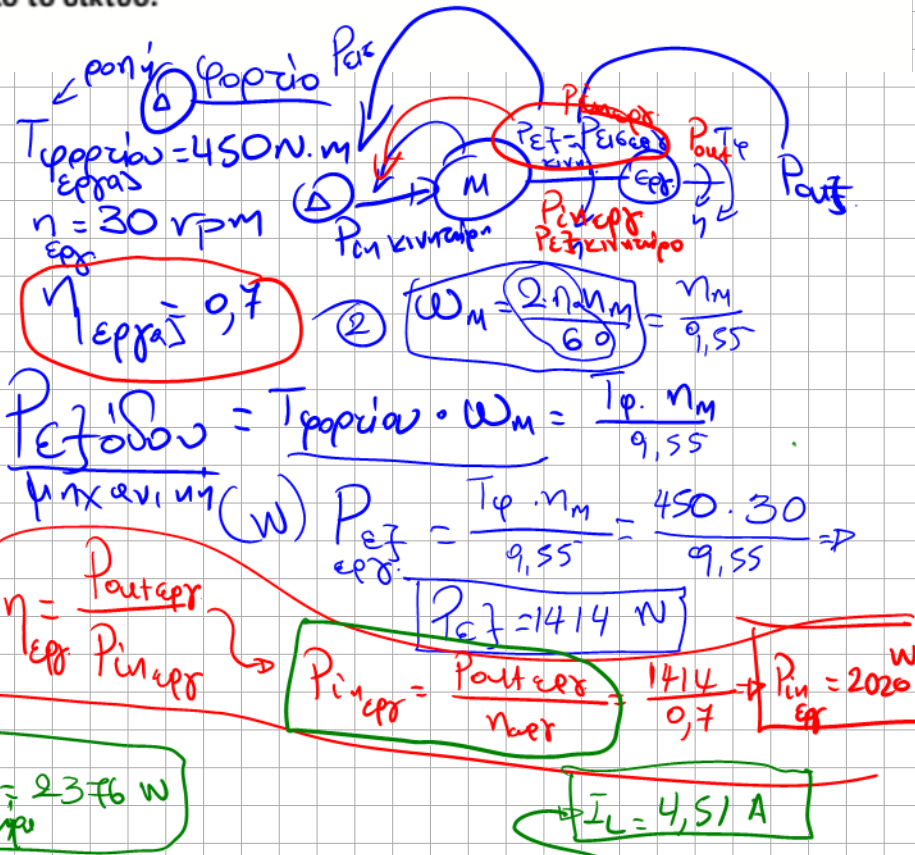 ροπή Δ φορτίο Pεισ
Tφορτίου = 450 N.m
εργασ
n = 30 rpm
εργ.
Δ M εργ
Pin εργ.
Pεξ = Pεισεργ
κινη
Pout Tφ
n
Pουτ
Pin κινητήρα
Pin εργ
Pεξ κινητήρα
η εργασ = 0,7
② ωM = 2.π.nM / 60 = nM / 9,55
Pεξόδου = Tφορτίου • ωM = Tφ. nM / 9,55
μηχανική
(W) Pεξ εργ. = Tφ.nM / 9,55 = 450 . 30 / 9,55 =>
Pεξ = 1414 W
η εργ = Pout εργ / Pin εργ
Pin εργ = Pout εργ / η εργ = 1414 / 0,7 => Pin εργ = 2020 W
= 2376 W
IL = 4,51 A